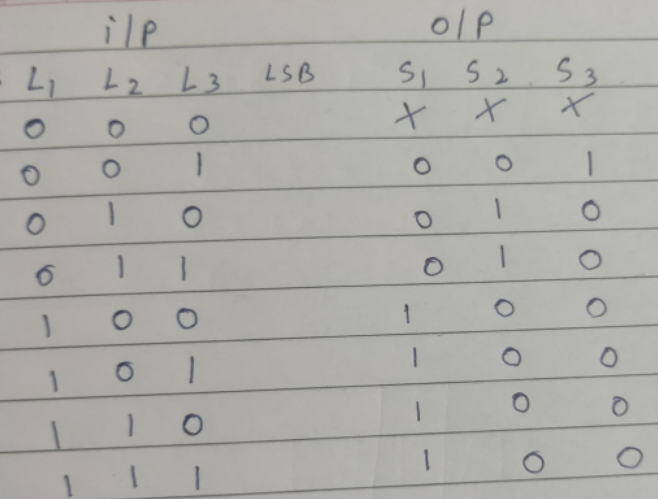 i/p o/p
L1 L2 L3 LSB S1 S2 S3
0 0 0 X X X
0 0 1 0 0 1
0 1 0 0 1 0
0 1 1 0 1 0
1 0 0 1 0 0
1 0 1 1 0 0
1 1 0 1 0 0
1 1 1 1 0 0